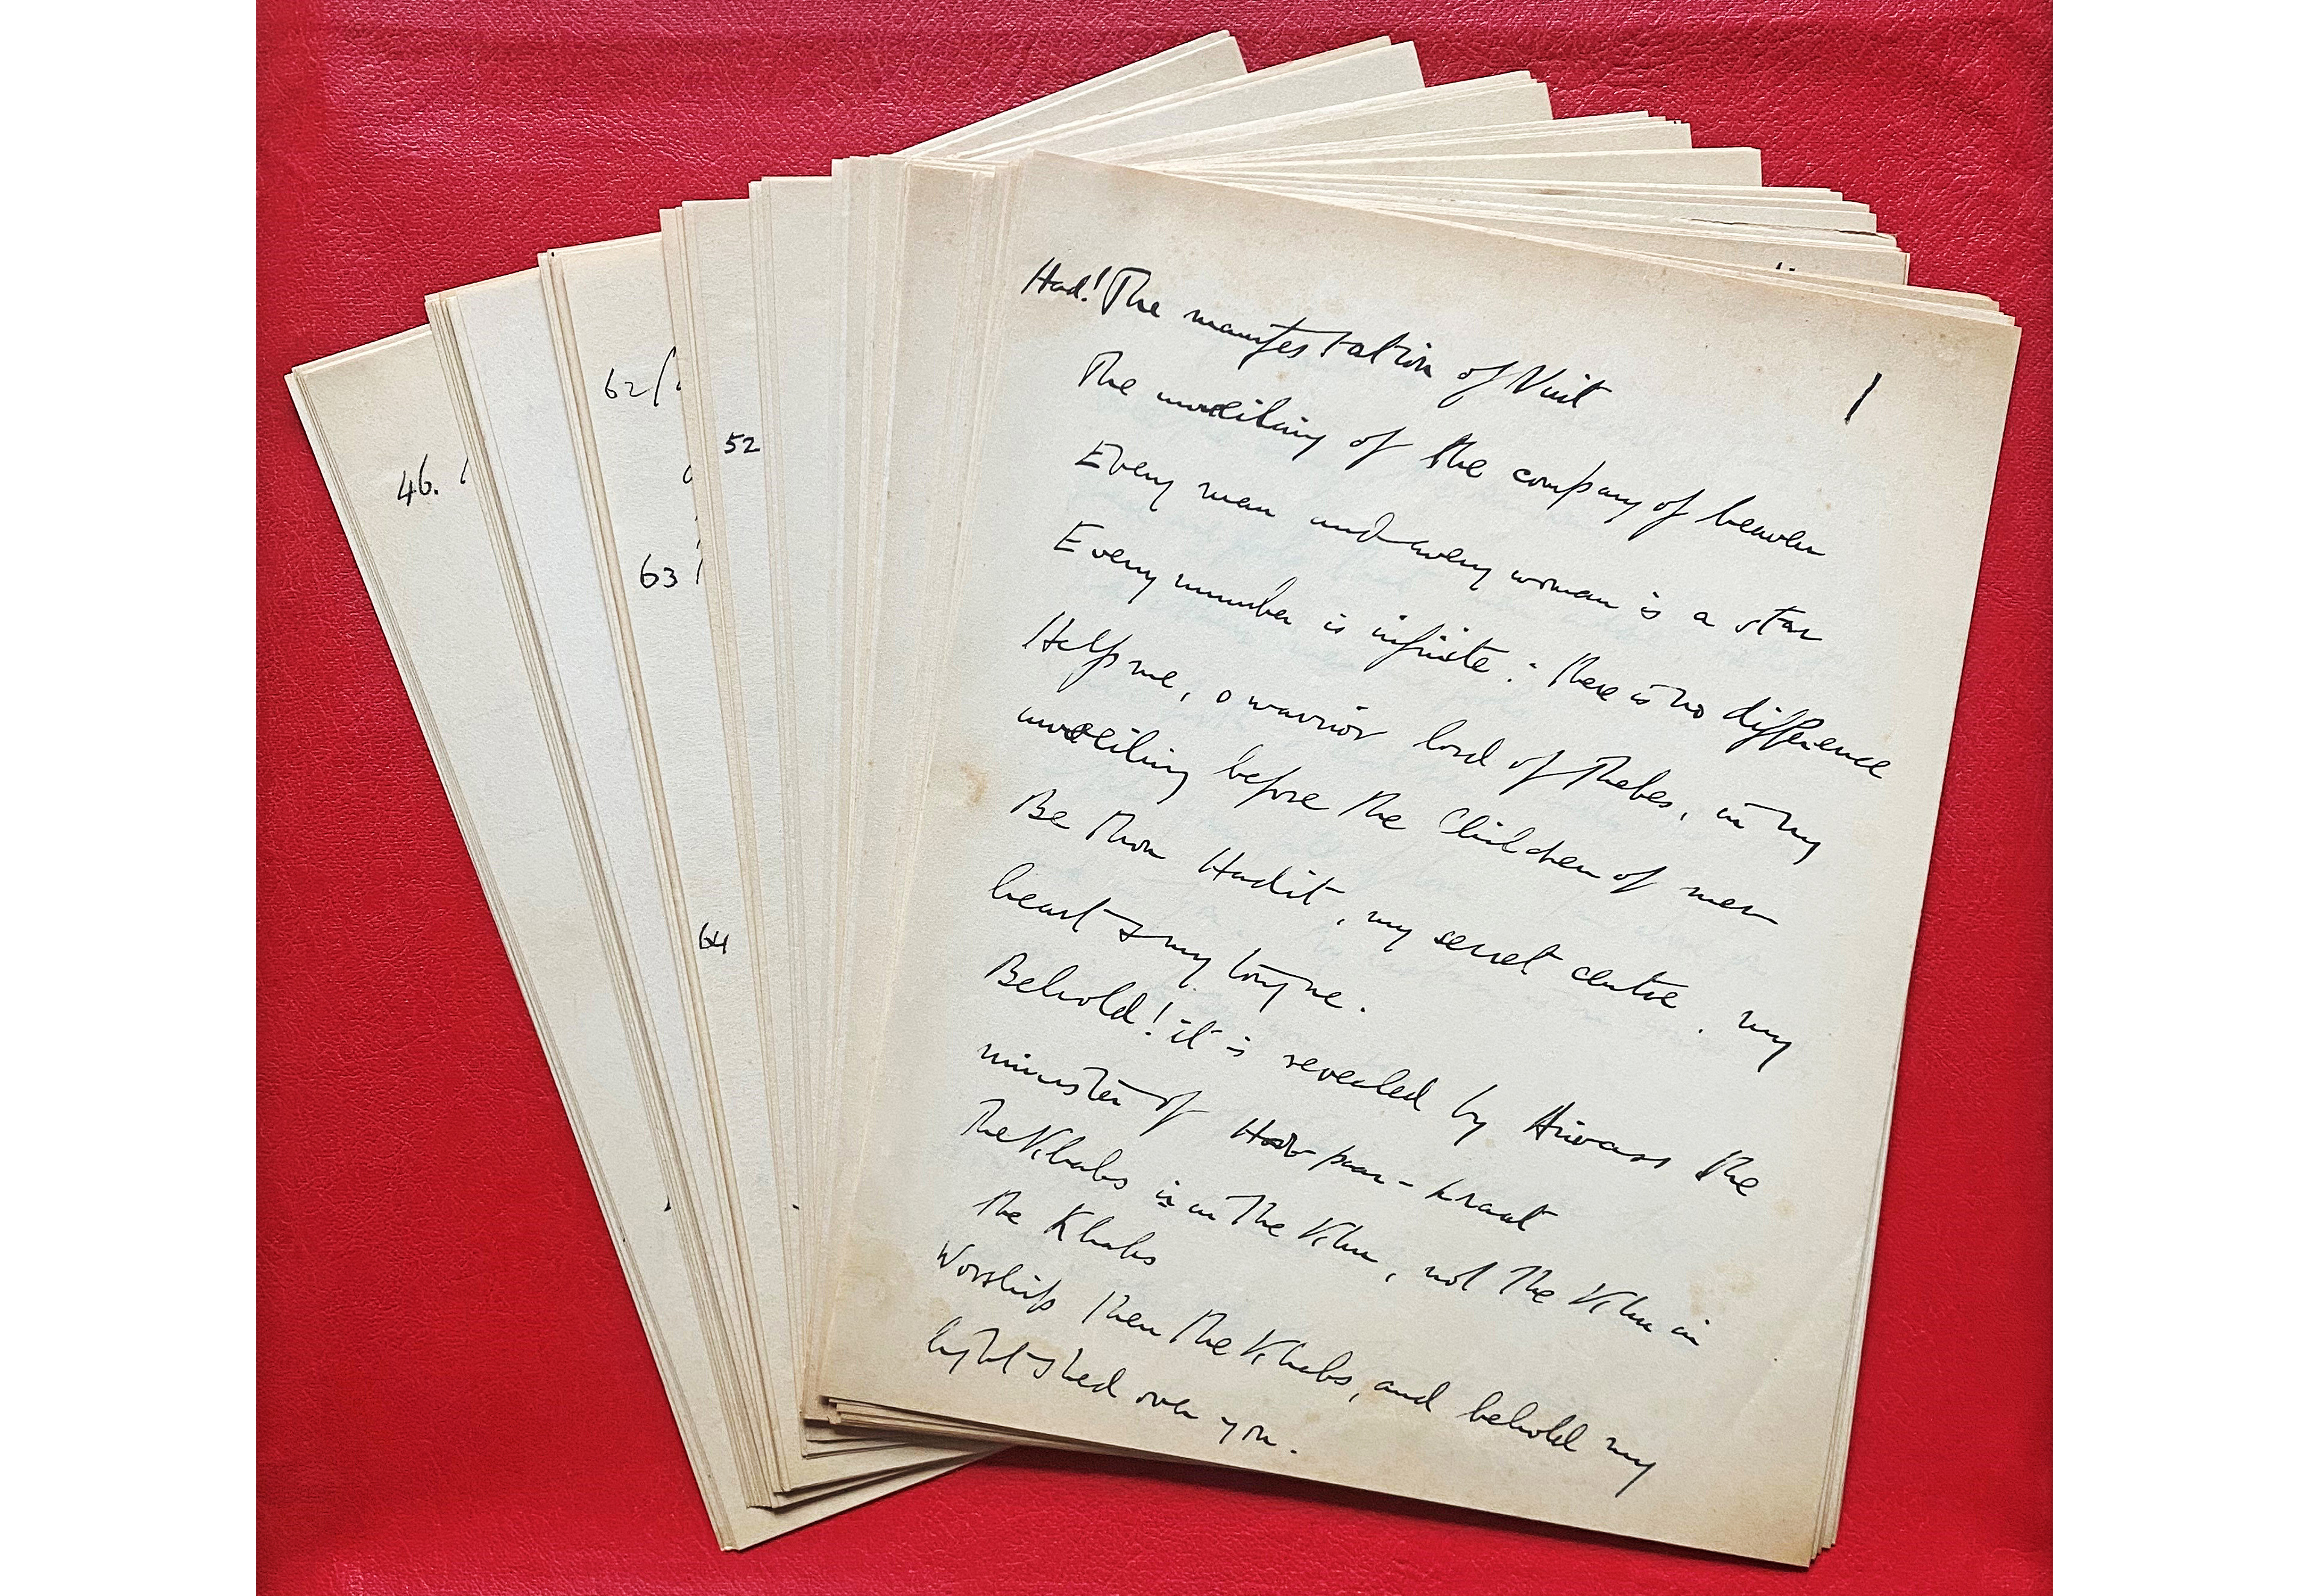 46.
62/
63
64
52
1
Had! The manifestation of Nuit
The unveiling of the company of heaven
Every man and every woman is a star
Every number is infinite: there is no difference
Help me, o warrior lord of Thebes, in my
unveiling before the Children of men
Be thou Hadit, my secret centre, my
heart & my tongue.
Behold! it is revealed by Aiwass the
minister of Hoor-paar-kraat
The Khabs is in the Khu, not the Khu in
the Khabs
Worship then the Khabs, and behold my
light shed over you.